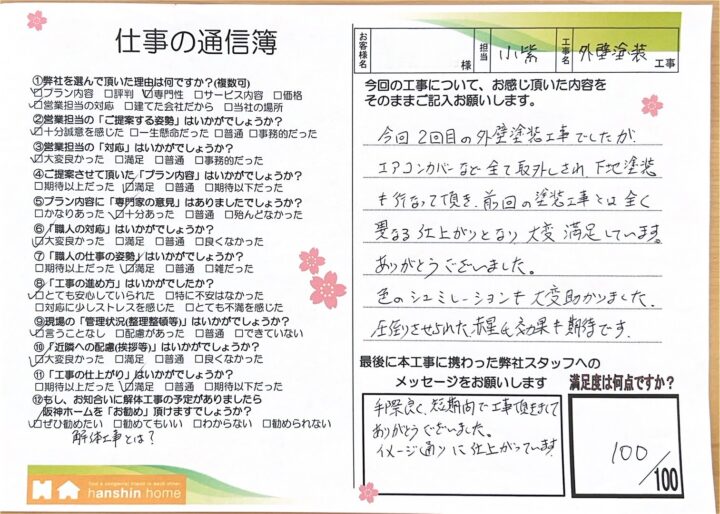 仕事の通信簿
①弊社を選んで頂いた理由は何ですか?(複数可)
□プラン内容 □評判 □専門性 □サービス内容 □価格
□営業担当の対応 □建てた会社だから □当社の場所
②営業担当の「ご提案する姿勢」はいかがでしょうか?
□十分誠意を感じた □一生懸命だった □普通 □事務的だった
③営業担当の「対応」はいかがでしょうか?
□大変良かった □満足 □普通 □事務的だった
④ご提案させて頂いた「プラン内容」はいかがでしょうか?
□期待以上だった □満足 □普通 □期待以下だった
⑤プラン内容に「専門家の意見」はありましたでしょうか?
□かなりあった □十分あった □普通 □殆んどなかった
⑥「職人の対応」はいかがでしょうか?
□大変良かった □満足 □普通 □良くなかった
⑦「職人の仕事の姿勢」はいかがでしょうか?
□期待以上だった □満足 □普通 □雑だった
⑧「工事の進め方」はいかがでしたか?
□とても安心していられた □特に不安はなかった
□対応に少しストレスを感じた □とても不満を感じた
⑨現場の「管理状況(整理整頓等)」はいかがでしょうか?
□言うことなし □配慮があった □普通 □できていない
⑩「近隣への配慮(挨拶等)」はいかがでしょうか?
□大変良かった □満足 □普通 □良くなかった
⑪「工事の仕上がり」はいかがでしょうか?
□期待以上だった □満足 □普通 □期待以下だった
⑫もし、お知合いに解体工事の予定がありましたら
阪神ホームを「お勧め」頂けますでしょうか?
□ぜひ勧めたい □勧めてもいい □わからない □勧められない
解体工事とは?
hanshin home
お客様名 様 担当 小紫 工事名 外壁塗装 工事
今回の工事について、お感じ頂いた内容を
そのままご記入お願いします。
今回2回目の外壁塗装工事でしたが、
エアコンカバーなど全て取外しされ、下地塗装
も行なって頂き、前回の塗装工事とは全く
異なる仕上がりとなり大変満足しています。
ありがとうございました。
色のシュミレーションも大変助かりました。
圧倒させられた赤星氏効果も期待です.
最後に本工事に携わった弊社スタッフへの
メッセージをお願いします
手際良く、短期間で工事頂きまして
ありがとうございました。
イメージ通りに仕上がっています
満足度は何点ですか?
100
/100